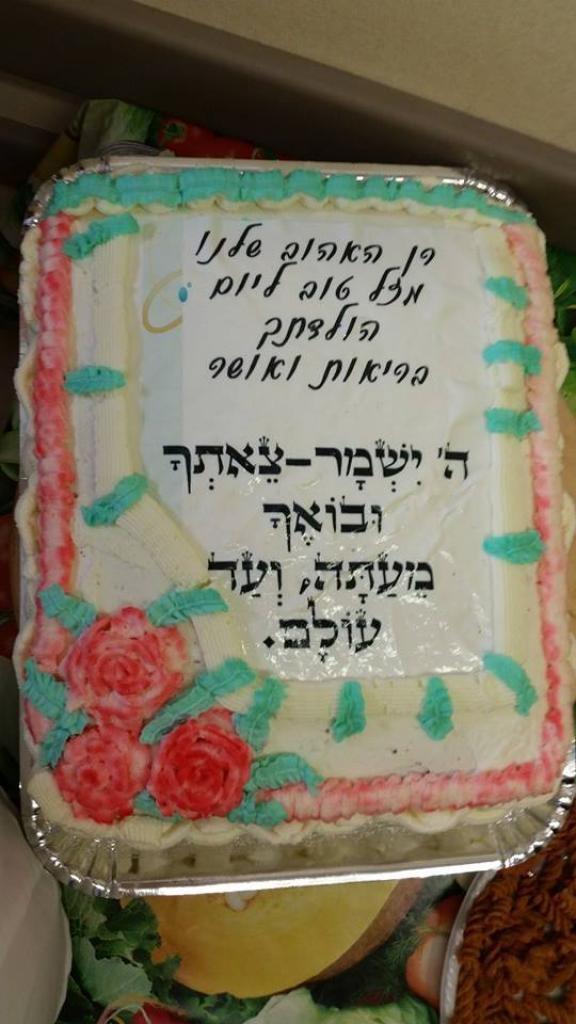 רן האהוב שלנו
מזל טוב ליום
הולדתך
בריאות ואושר
ה' יִשְׁמָר-צֵאתְךָ
וּבוֹאֶךָ
מֵעַתָּה, וְעַד
עוֹלָם.